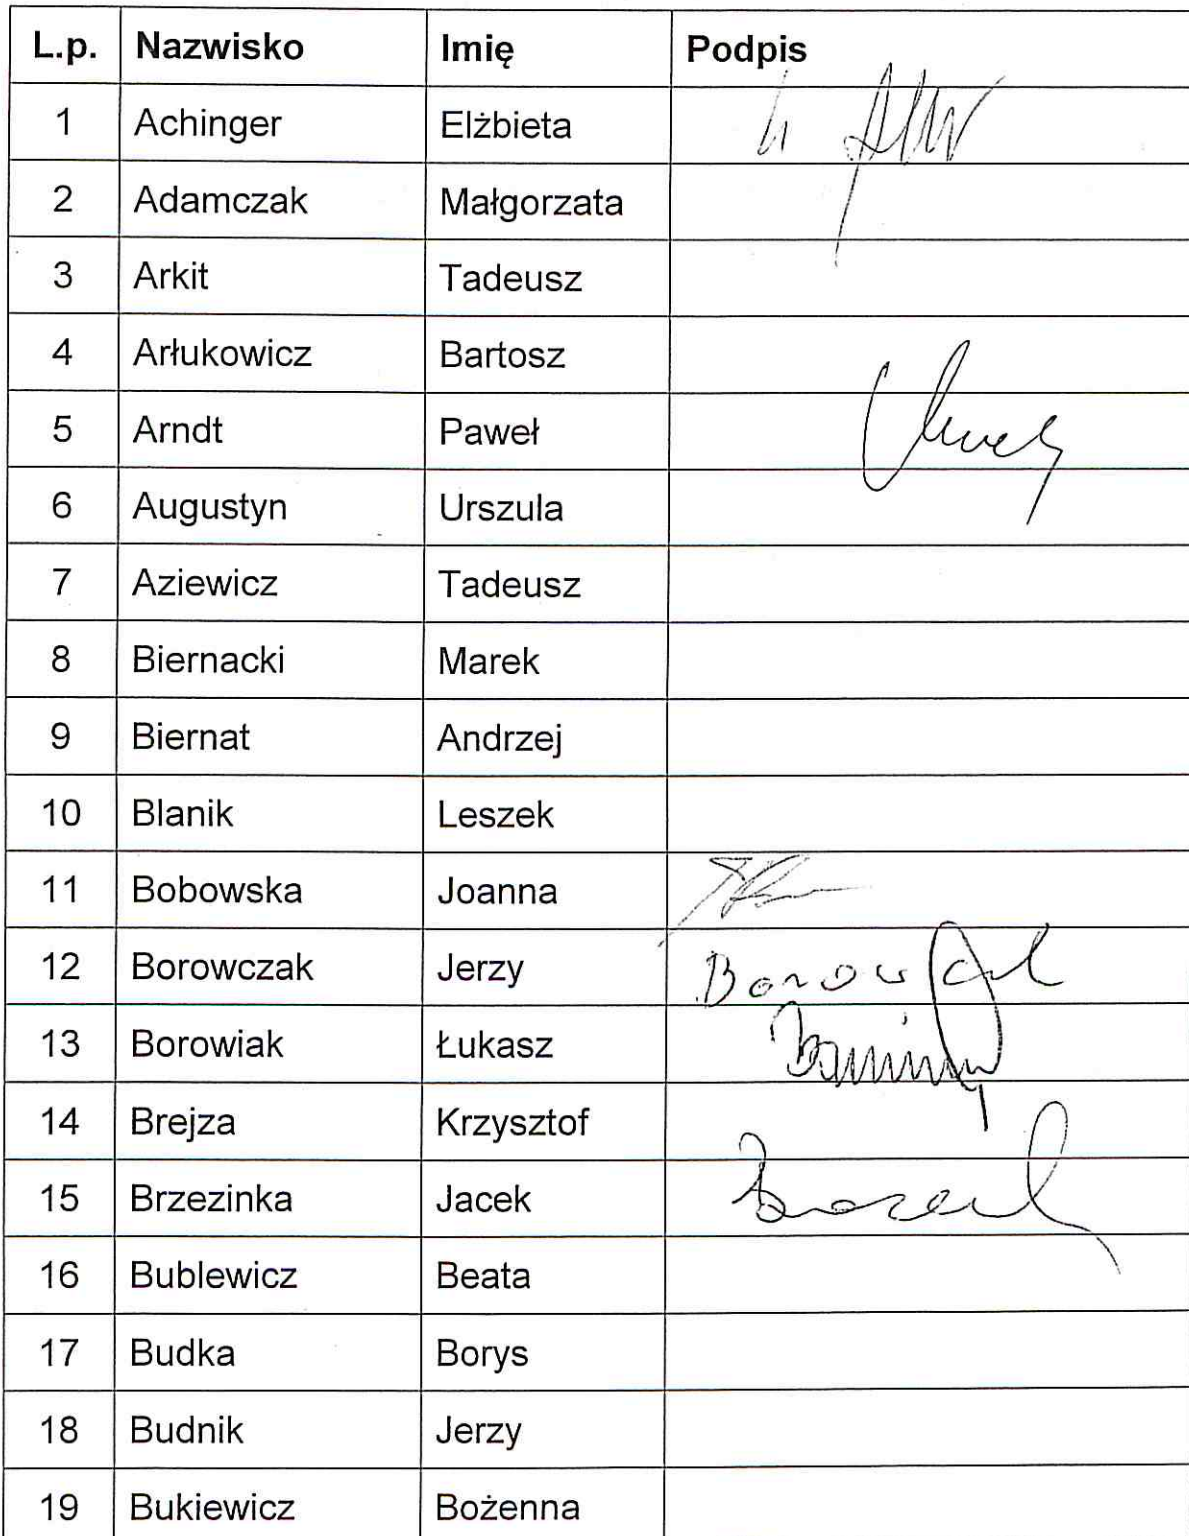 L.p. Nazwisko Imię Podpis
1 Achinger Elżbieta
2 Adamczak Małgorzata
3 Arkit Tadeusz
4 Arłukowicz Bartosz
5 Arndt Paweł
6 Augustyn Urszula
7 Aziewicz Tadeusz
8 Biernacki Marek
9 Biernat Andrzej
10 Blanik Leszek
11 Bobowska Joanna
12 Borowczak Jerzy
13 Borowiak Łukasz
14 Brejza Krzysztof
15 Brzezinka Jacek
16 Bublewicz Beata
17 Budka Borys
18 Budnik Jerzy
19 Bukiewicz Bożenna